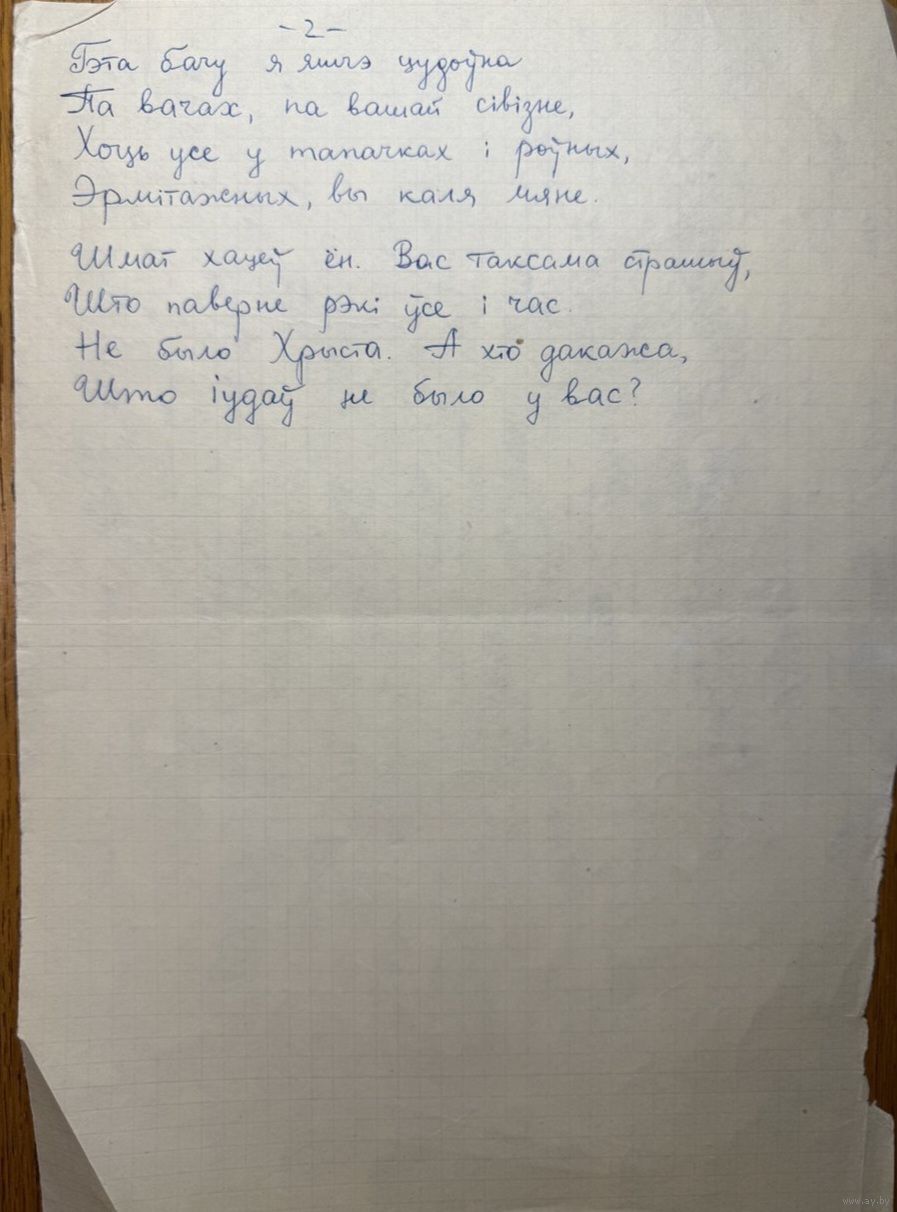 - 2 -
Гэта бачу я яшчэ цудоўна
Па вачах, па вашай сівізне,
Хоць усе у тапачках і роўных,
Эрмітажных, вы каля мяне.
Шмат хацеў ён. Вас таксама страшыў,
Што паверне рэкі ўсе і час.
Не было Хрыста. А хто дакажа,
Што іудаў не было у вас?
www.ay.by